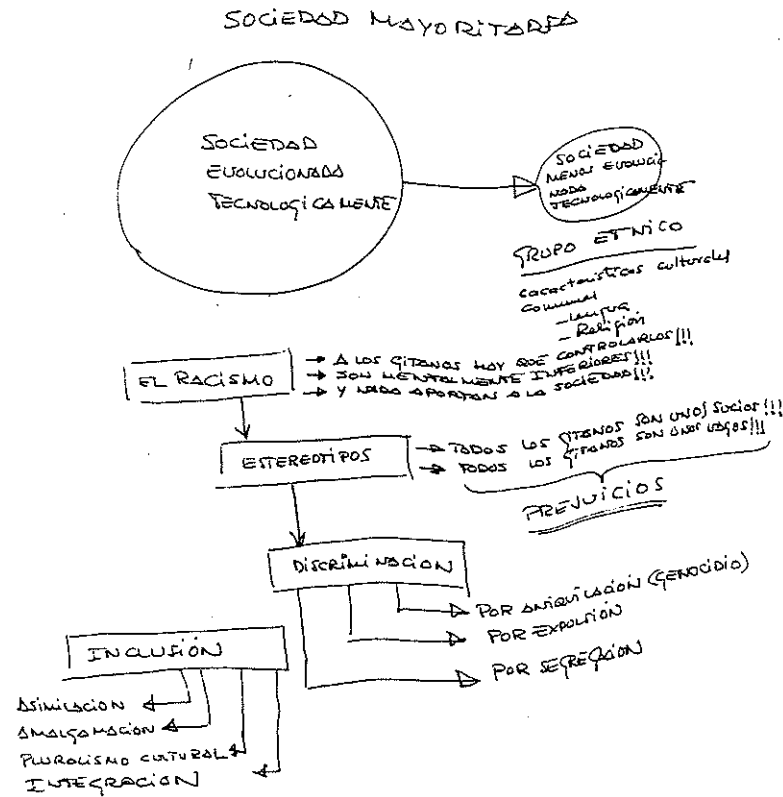 SOCIEDAD MAYORITARIA
SOCIEDAD
EVOLUCIONADA
TECNOLOGICAMENTE
SOCIEDAD
MENOS EVOLUCIO
NADA
TECNOLOGICAMENTE
GRUPO ETNICO
caracteristicas culturales
comunes
- Lengua
- Religión
EL RACISMO
→ A LOS GITANOS HAY QUE CONTROLARLOS!!!
→ SON MENTALMENTE INFERIORES!!!
→ Y NADA APORTAN A LA SOCIEDAD!!!
ESTEREOTIPOS
→ TODOS LOS GITANOS SON UNOS SUCIOS!!!
→ TODOS LOS GITANOS SON UNOS VAGOS!!!
PREJUICIOS
DISCRIMINACION
POR ANIQUILACIÓN (GENOCIDIO)
POR EXPULSIÓN
POR SEGREGACION
INCLUSIÓN
ASIMILACION
AMALGAMACION
PLURALISMO CULTURAL
INTEGRACION